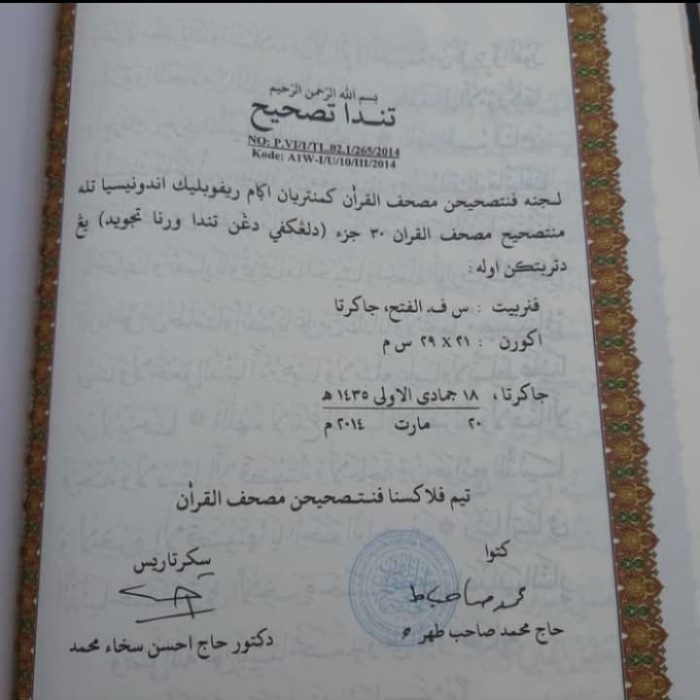 بسم الله الرحمن الرحيم
تندا تصحيح
NO: P.VI/I/TL.02.1/265/2014
Kode: A1W-I/U/10/III/2014
لجنه فنتصحيحن مصحف القرأن كمنتريان اݢام ريفوبليك اندونيسيا تله
منتصحيح مصحف القران ٣٠ جزء (دلڠكفي دڠن تندا ورنا تجويد) يڠ
دتربتكن اوله :
فنربيت : س ف. الفتح، جاكرتا
اكورن : ٢١ X ٢٩ س م
جاكرتا، ١٨ جمادى الاولى ١٤٣٥ ه
٢٠ مارت ٢٠١٤ م
تيم فلاكسنا فنتصحيحن مصحف القرأن
كتوا
سكرتاريس
حاج محمد صاحب طهر
دكتور حاج احسن سخاء محمد